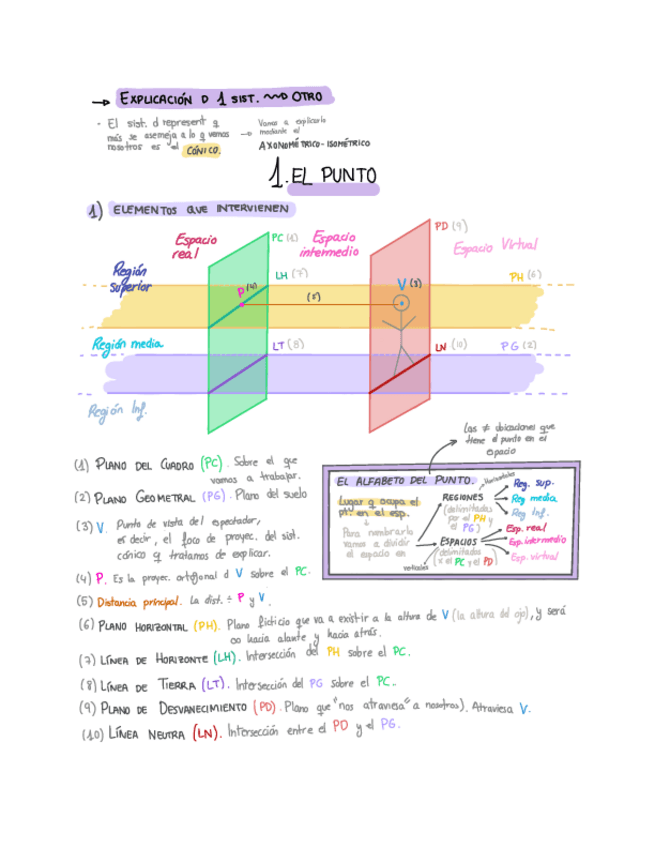 → EXPLICACIÓN D 1 SIST. ~~> OTRO
- El sist. d represent q
más se asemeja a lo q vemos
nosotros es el CÓNICO.
→ Vamos a explicarlo
mediante el
AXONOMÉTRICO-ISOMÉTRICO
1. EL PUNTO
1) ELEMENTOS QUE INTERVIENEN
Espacio
real
PC (1)
Espacio
intermedio
PD (9)
Espacio Virtual
Región
Superior
LH (7)
P (4)
(5)
V (3)
PH (6)
Región media
LT (8)
LN (10)
PG (2)
Región Inf.
Las ≠ ubicaciones que
tiene el punto en el
espacio
(1) PLANO DEL CUADRO (PC). Sobre el que
vamos a trabajar.
(2) PLANO GEOMETRAL (PG). Plano del suelo
(3) V. Punto de vista del espectador,
es decir, el foco de proyec. del sist.
cónico q tratamos de explicar.
(4) P. Es la proyec. ortogonal d V sobre el PC.
(5) Distancia principal. La dist. ÷ P y V.
EL ALFABETO DEL PUNTO.
Lugar q ocupa el
pto. en el esp.
↓
Para nombrarlo
vamos a dividir
el espacio en
horizontales
REGIONES
(delimitadas
por el PH y
el PG)
Reg. sup.
Reg media
Reg Inf.
verticales
ESPACIOS
(delimitados
x el PC y el PD)
Esp. real
Esp. intermedio
Esp. virtual
(6) PLANO HORIZONTAL (PH). Plano ficticio que va a existir a la altura de V (la altura del ojo), y será
∞ hacia alante y hacia atrás.
(7) LÍNEA DE HORIZONTE (LH). Intersección del PH sobre el PC.
(8) LÍNEA DE TIERRA (LT). Intersección del PG sobre el PC..
(9) PLANO DE DESVANECIMIENTO (PD). Plano que "nos atraviesa" a nosotros). Atraviesa V.
(10) LÍNEA NEUTRA (LN). Intersección entre el PD y el PG.